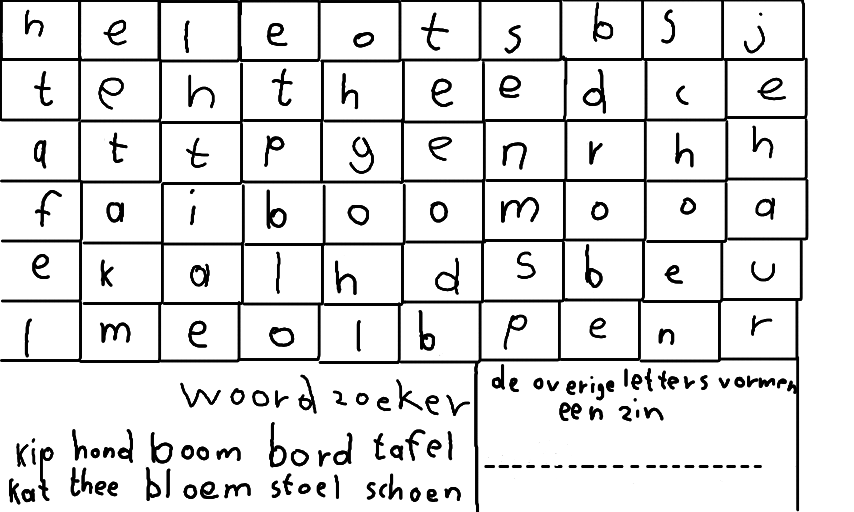 h e l e o t s b s j
t e h t h e e d c e
a t t p g e n r h h
f a i b o o m o o a
e k a l h d s b e u
l m e o l b p e n r
woordzoeker
kip hond boom bord tafel
kat thee bloem stoel schoen
de overige letters vormen
een zin